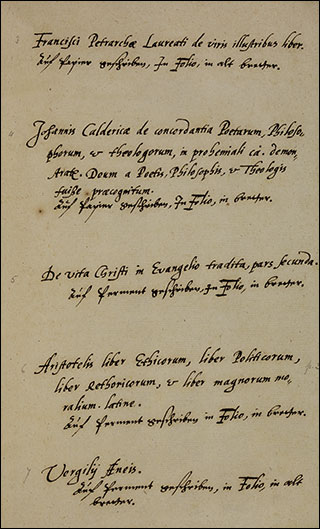 Francisci Petrarchæ Laureati de viris illustribus liber.
Auf Papier geschriben, In Folio, in alt bretter.
Johannis Calderiæ de concordantia Poetarum, Philoso-
phorum, & theologorum, in prohemiali cå. demon-
Deum a Poetis, Philosophis, & Theologis
fuiße præcognitum.
Auf Papier geschriben, In Folio, in bretter.
De vita Christi in Evangelio tradita, pars secunda.
Auf Perment geschriben, In Folio, in bretter.
Aristotelis liber Ethicorum, liber Politicorum,
liber Rethoricorum, & liber magnorum mo-
ralium. latine.
Auf Perment geschriben in Folio, in bretter.
Vergilij Æneis.
Auf Perment geschriben, in Folio, in alt
bretter.